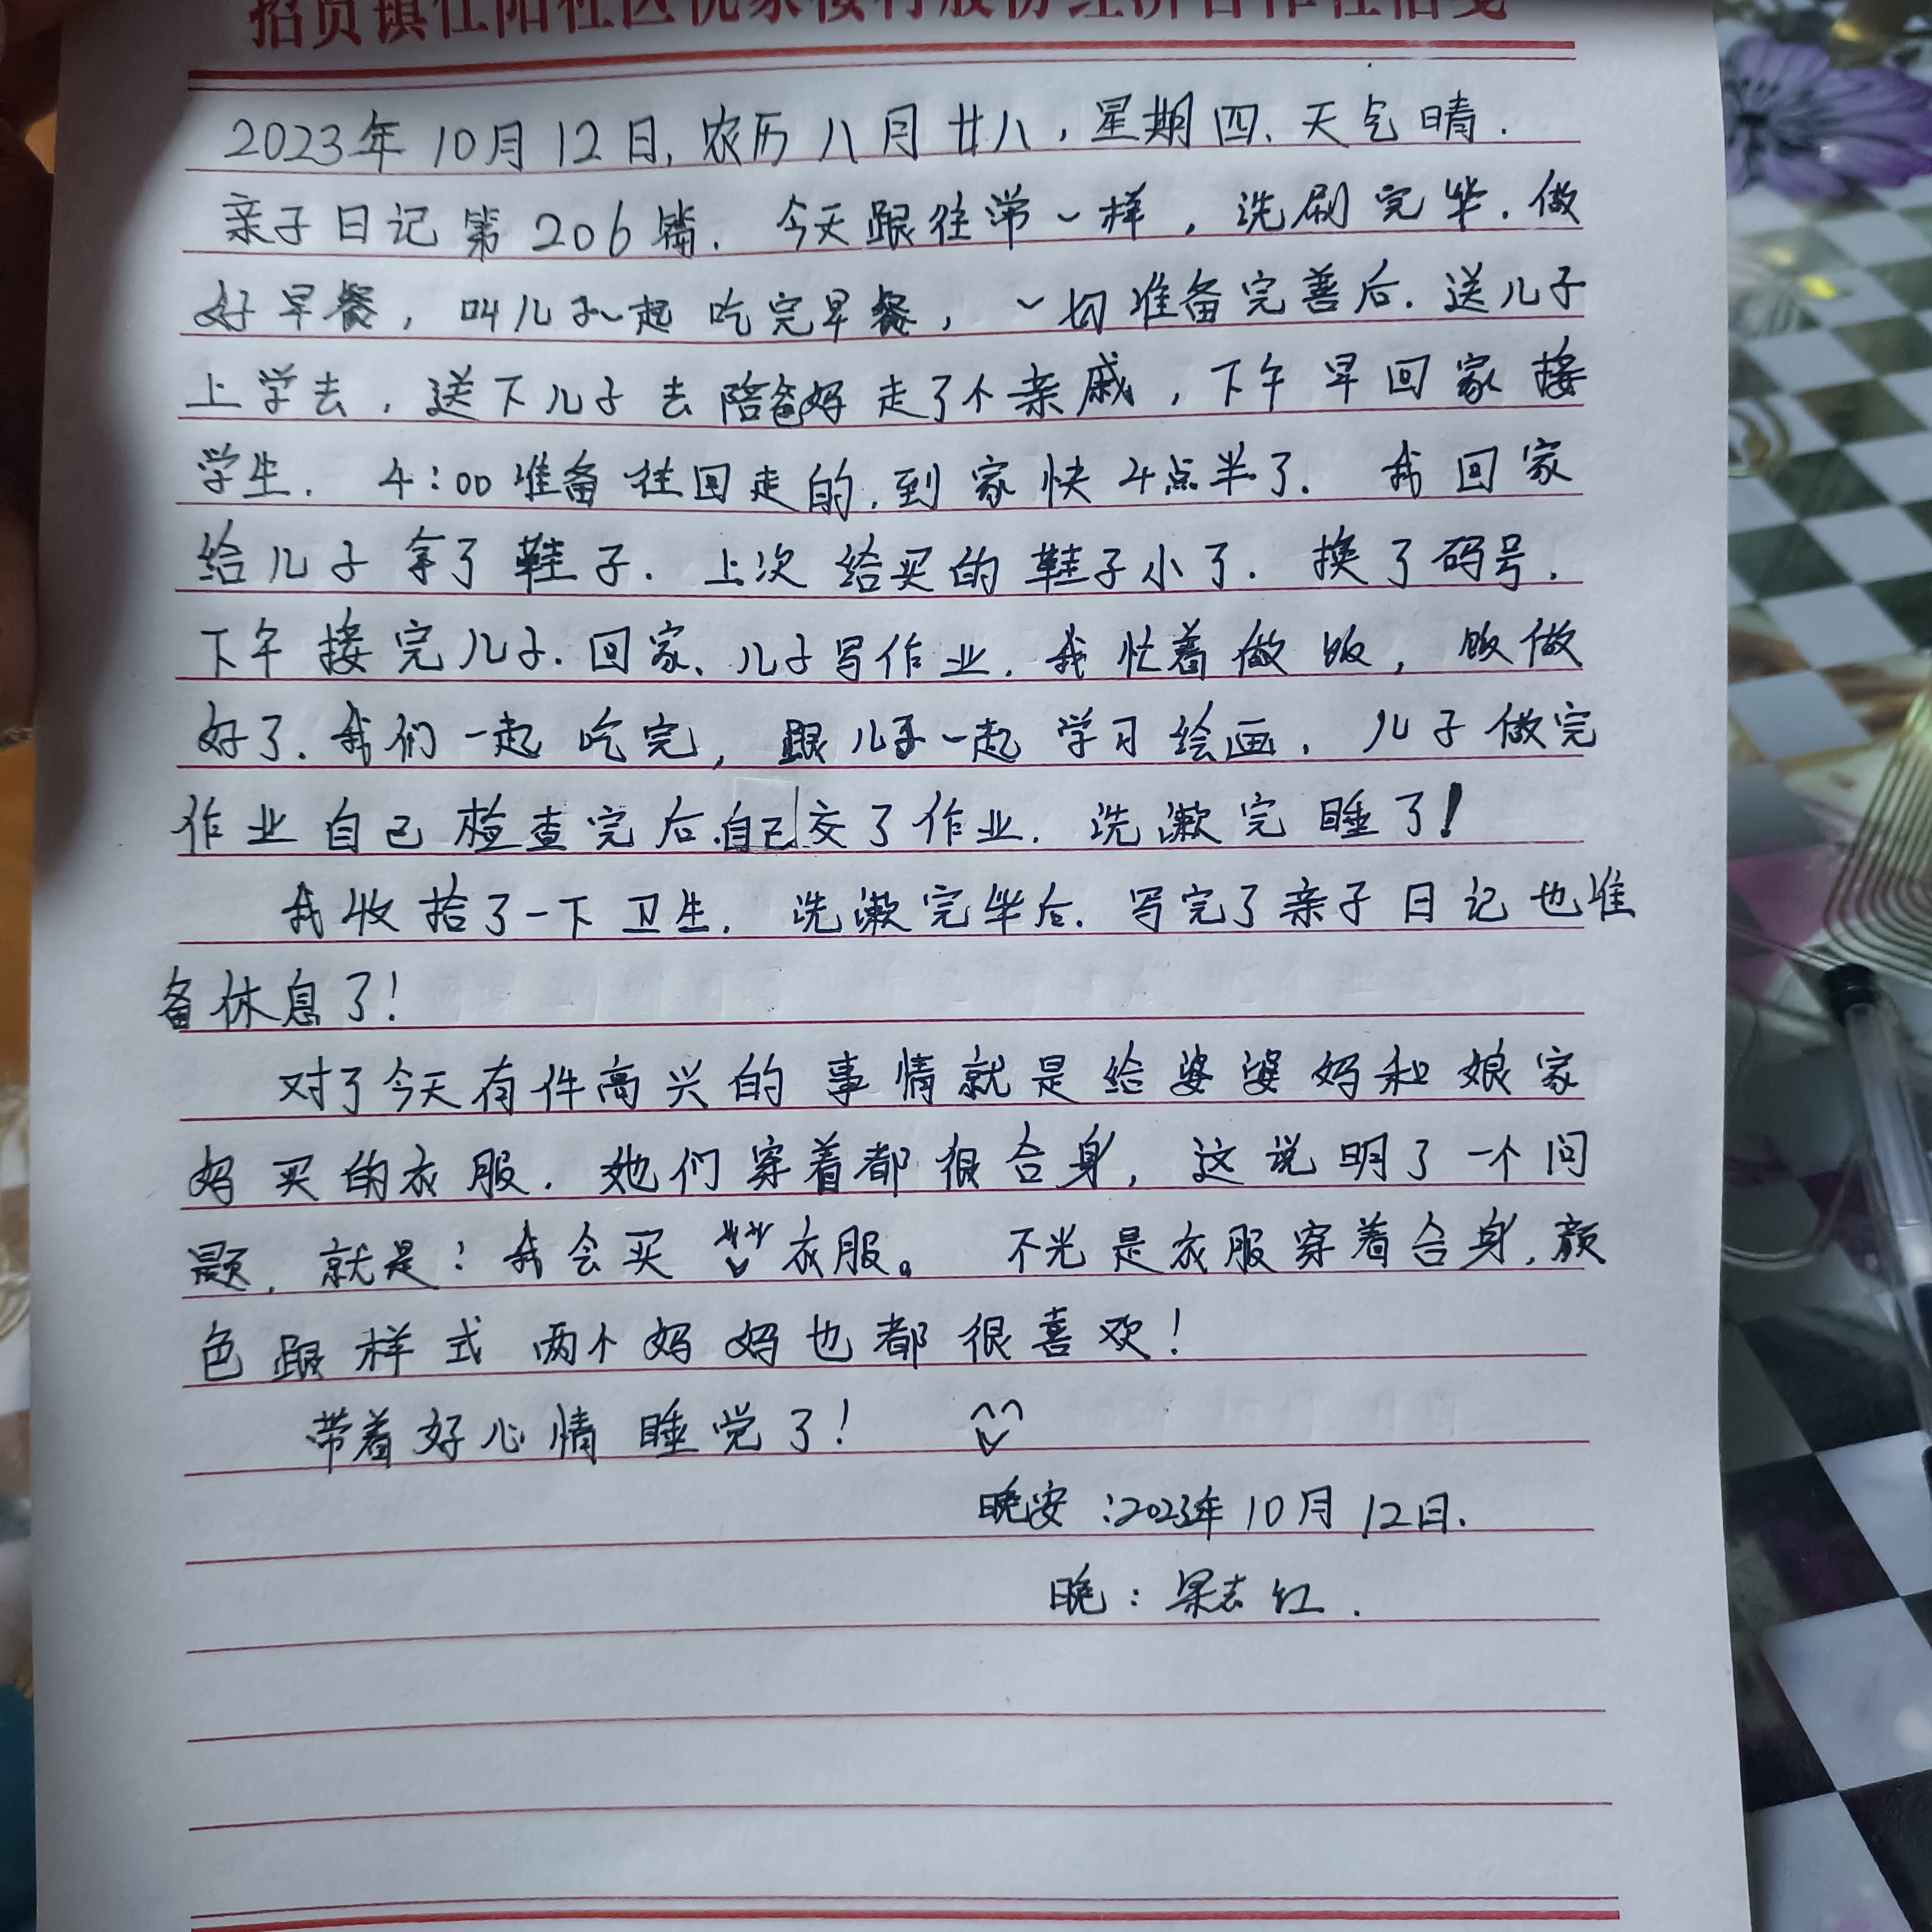 2023年10月12日,农历八月廿八,星期四、天气晴.
亲子日记第206篇.今天跟往常一样,洗刷完毕.做
好早餐,叫儿子一起吃完早餐,一切准备完善后.送儿子
上学去,送下儿子去陪爸妈走了个亲戚,下午早回家接
学生.4:00准备往回走的.到家快4点半了.我回家
给儿子拿了鞋子.上次给买的鞋子小了.换了码号.
下午接完儿子.回家、儿子写作业.我忙着做饭,饭做
好了.我们一起吃完,跟儿子一起学习绘画.儿子做完
作业自己检查完后.自己交了作业.洗漱完睡了!
我收拾了一下卫生.洗漱完毕后.写完了亲子日记也准
备休息了!
对了今天有件高兴的事情就是给婆婆妈和娘家
妈买的衣服.她们穿着都很合身,这说明了一个问
题,就是:我会买衣服。不光是衣服穿着合身,颜
色跟样式两个妈妈也都很喜欢!
带着好心情睡觉了!
晚安:2023年10月12日.
晚:梁志红.